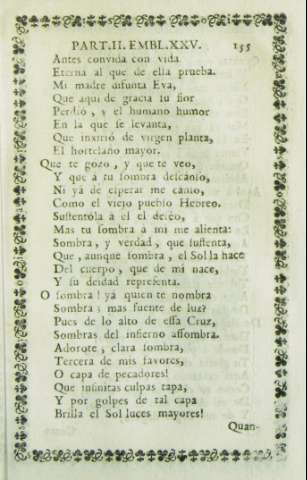 PART.II. EMBL.XXV. 155
Antes convida con vida
Eterna al que de ella prueba.
Mi madre difunta Eva,
Que aqui de gracia tu flor
Perdió, y el humano humor
En la que se levanta,
Que inxirió de virgen planta,
El hortelano mayor.
Que te gozo, y que te veo,
Y que à tu sombra descanso,
Ni yà de esperar me canso,
Como el viejo pueblo Hebreo.
Sustentòla à el el deseo,
Mas tu sombra à mi me alienta:
Sombra, y verdad, que sustenta,
Que, aunque sombra, el Sol la hace
Del cuerpo, que de mi nace,
Y su deidad representa.
O sombra! ya quien te nombra
Sombra; mas fuente de luz?
Pues de lo alto de essa Cruz,
Sombras del infierno assombra.
Adorote, clara sombra,
Tercera de mis favores,
O capa de pecadores!
Que infinitas culpas tapa,
Y por golpes de tal capa
Brilla el Sol luces mayores!
Quan-